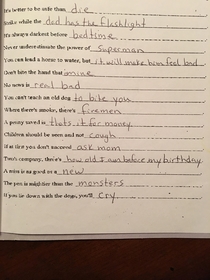 It's better to be safe than die
Strike while the dad has the flashlight
It's always darkest before bedtime
Never underestimate the power of Superman
You can lead a horse to water, but it will make him feel bad
Don't bite the hand that mine
No news is real bad
You can't teach an old dog to bite you
Where there's smoke, there's firemen
A penny saved is thats it for money
Children should be seen and not cough
If at first you don't succeed ask mom
Two's company, three's how old I was before my birthday
A miss is as good as a new
The pen is mightier than the monsters
If you lie down with the dogs, you'll cry